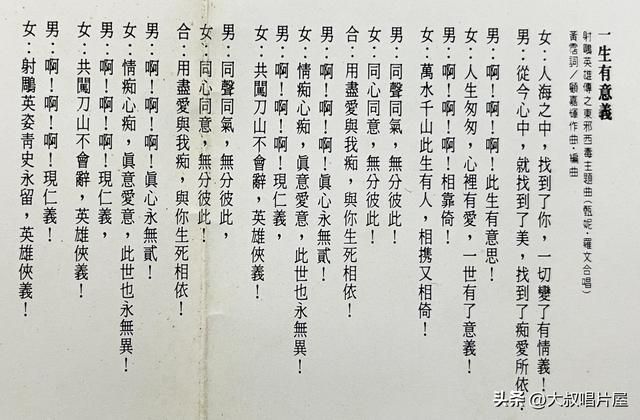 一生有意義
射鵰英雄傳之東邪西毒主題曲(甄妮‧羅文合唱)
黃霑詞/顧嘉煇作曲‧編曲
女:人海之中,找到了你,一切變了有情義!
男:從今心中,就找到了美,找到了痴愛所依.
男:啊!啊!啊!此生有意思!
女:人生匆匆,心裡有愛,一世有了意義!
男:啊!啊!啊!相靠倚!
女:萬水千山此生有人,相携又相倚!
男:同聲同氣,無分彼此,
女:同心同意,無分彼此!
合:用盡愛與我痴,與你生死相依!
男:啊!啊!啊!眞心永無貳!
女:情痴心痴,眞意愛意,此世也永無異!
男:啊!啊!啊!現仁義,
女:共闖刀山不會辭,英雄俠義!
男:同聲同氣,無分彼此,
女:同心同意,無分彼此!
合:用盡愛與我痴,與你生死相依!
男:啊!啊!啊!眞心永無貳!
女:情痴心痴,眞意愛意,此世也永無異!
男:啊!啊!啊!現仁義,
女:共闖刀山不會辭,英雄俠義!
男:啊!啊!啊!現仁義!
女:射鵰英姿靑史永留,英雄俠義!
头条 @大叔唱片屋